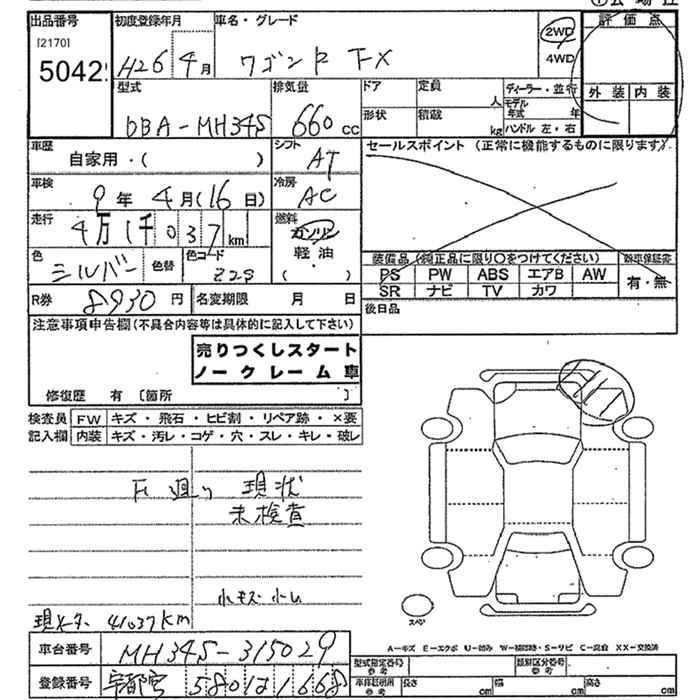 出品番号 初度登録年月 車名・グレード 評価点
[2170] 5042 H26 4月 ワゴンR FX 2WD 4WD
外装 内装
型式 排気量 ドア 定員 人 ディーラー・並行
DBA-MH34S 660cc 形状 積載 kg モデル年式 年 ハンドル 左・右
車歴 自家用・( ) シフト AT セールスポイント (正常に機能するものに限ります)
車検 9年 4月(16日) 冷房 AC
走行 4万1千037km 燃料 ガソリン 軽油 ( )
色 シルバー 色替 色コード Z2S
装備品(純正品に限り○をつけてください) 新車保証書
PS PW ABS エアB AW 有・無
SR ナビ TV カワ
R券 8930円 名変期限 月 日 後日品
注意事項申告欄(不具合内容等は具体的に記入して下さい)
売りつくしスタート
ノークレーム車
修復歴 有〔箇所 〕
検査員 FW キズ・飛石・ヒビ割・リペア跡・×要
記入欄 内装 キズ・汚レ・コゲ・穴・スレ・キレ・破レ
廻り 現状
未検査
小キズ 小ム
41037km
スペア
A=キズ E=エクボ U=凹み W=補修跡 S=サビ C=腐食 XX=交換済
車台番号 MH34S-315029 型式指定番号 参考 類別区分番号 参考
登録番号 宇都宮 580 1668 参考 長さ cm 幅 cm 高さ cm